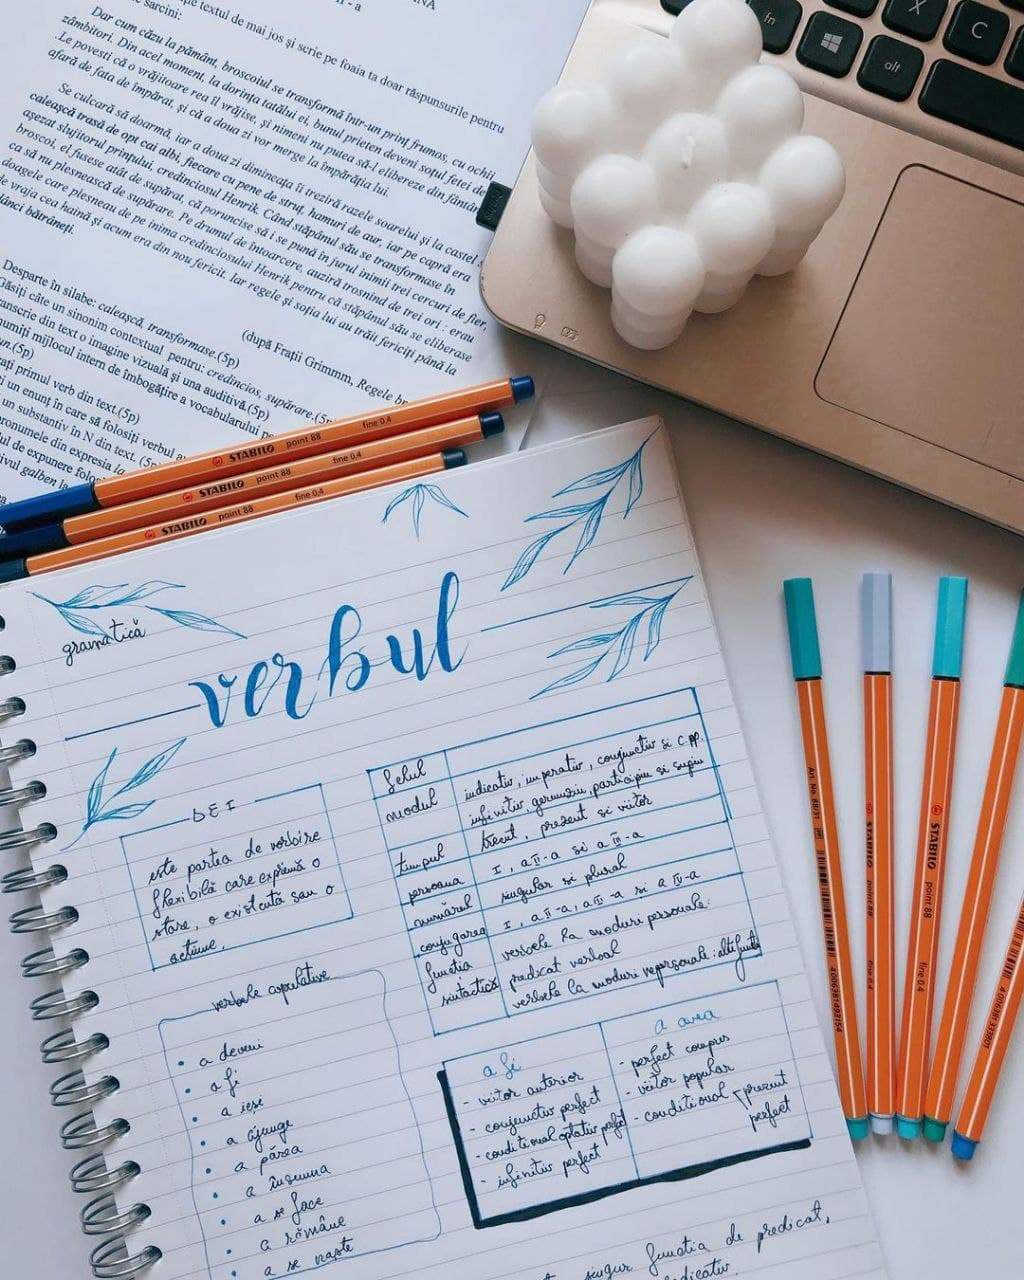 pe textul de mai jos și scrie pe foaia ta doar răspunsurile pentru
sarcini:
Dar cum căzu la pământ, broscoiul se transformă într-un prinț frumos, cu ochii
zâmbitori. Din acel moment, la dorința tatălui ei, bunul prieten deveni soțul fetei de
. Le povesti că o vrăjitoare rea îl vrăjise, și nimeni nu putea să-l elibereze din fântân
afară de fata de împărat, și că a doua zi vor merge la împărăția lui.
Se culcară să doarmă, iar a doua zi dimineața îi treziră razele soarelui și la castel
calească trasă de opt cai albi, fiecare cu pene de struț, hamuri de aur, iar pe capră era
așezat slujitorul prințului, credinciosul Henrik. Când stăpânul său se transformase în
broscoi, el fusese atât de supărat, că poruncise să i se pună în jurul inimii trei cercuri de fier,
ca să nu plesnească de supărare. Pe drumul de întoarcere, auziră trosnind de trei ori : erau
doagele care plesneau de pe inima credinciosului Henrik pentru că stăpânul său se eliberase
de vraja cea haină și acum era din nou fericit. Iar regele și soția lui au trăit fericiți până la
adânci bătrâneți.
(după Frații Grimmm, Regele br
Desparte în silabe: calească, transformase.(5p)
Găsiți câte un sinonim contextual pentru: credincios, supărare.(5p
transcrie din text o imagine vizuală și una auditivă.(5p)
numiți mijlocul intern de îmbogățire a vocabularului p
un.(5p)
ați primul verb din text.(5p)
i un enunț în care să folosiți verbul a
un substantiv în N din text. (5p
pronumele din expresia la
ul de expunere folos
ivul galben la
fn
X
C
alt
STABILO point 88 fine 0,4
STABILO point 88 fine 0,4
STABILO point 88 fine 0,4
gramatică
verbul
DEF
este partea de vorbire
flexibilă care exprimă o
stare, o existență sau o
acțiune.
felul
modul indicativ, imperativ, conjunctiv și c.p.p.
infinitiv, gerunziu, participiu și supin
timpul trecut, prezent și viitor
persoana I, a II-a și a III-a
numărul singular și plural
conjugarea I, a II-a, a III-a și a IV-a
funcția verbele la moduri personale:
sintactică predicat verbal
verbele la moduri nepersonale: alte funcții
verbele copulative
• a deveni
• a fi
• a ieși
• a ajunge
• a părea
• a însemna
• a se face
• a rămâne
• a se naște
a fi
- viitor anterior
- conjunctiv perfect
- condițional optativ perfect
- infinitiv perfect
a avea
- perfect compus
- viitor popular
- condițional prezent
perfect
singur funcția de predicat,
STABILO point 88 fine 0,4
STABILO point 88 fine 0,4
4006381493154
4006381333801